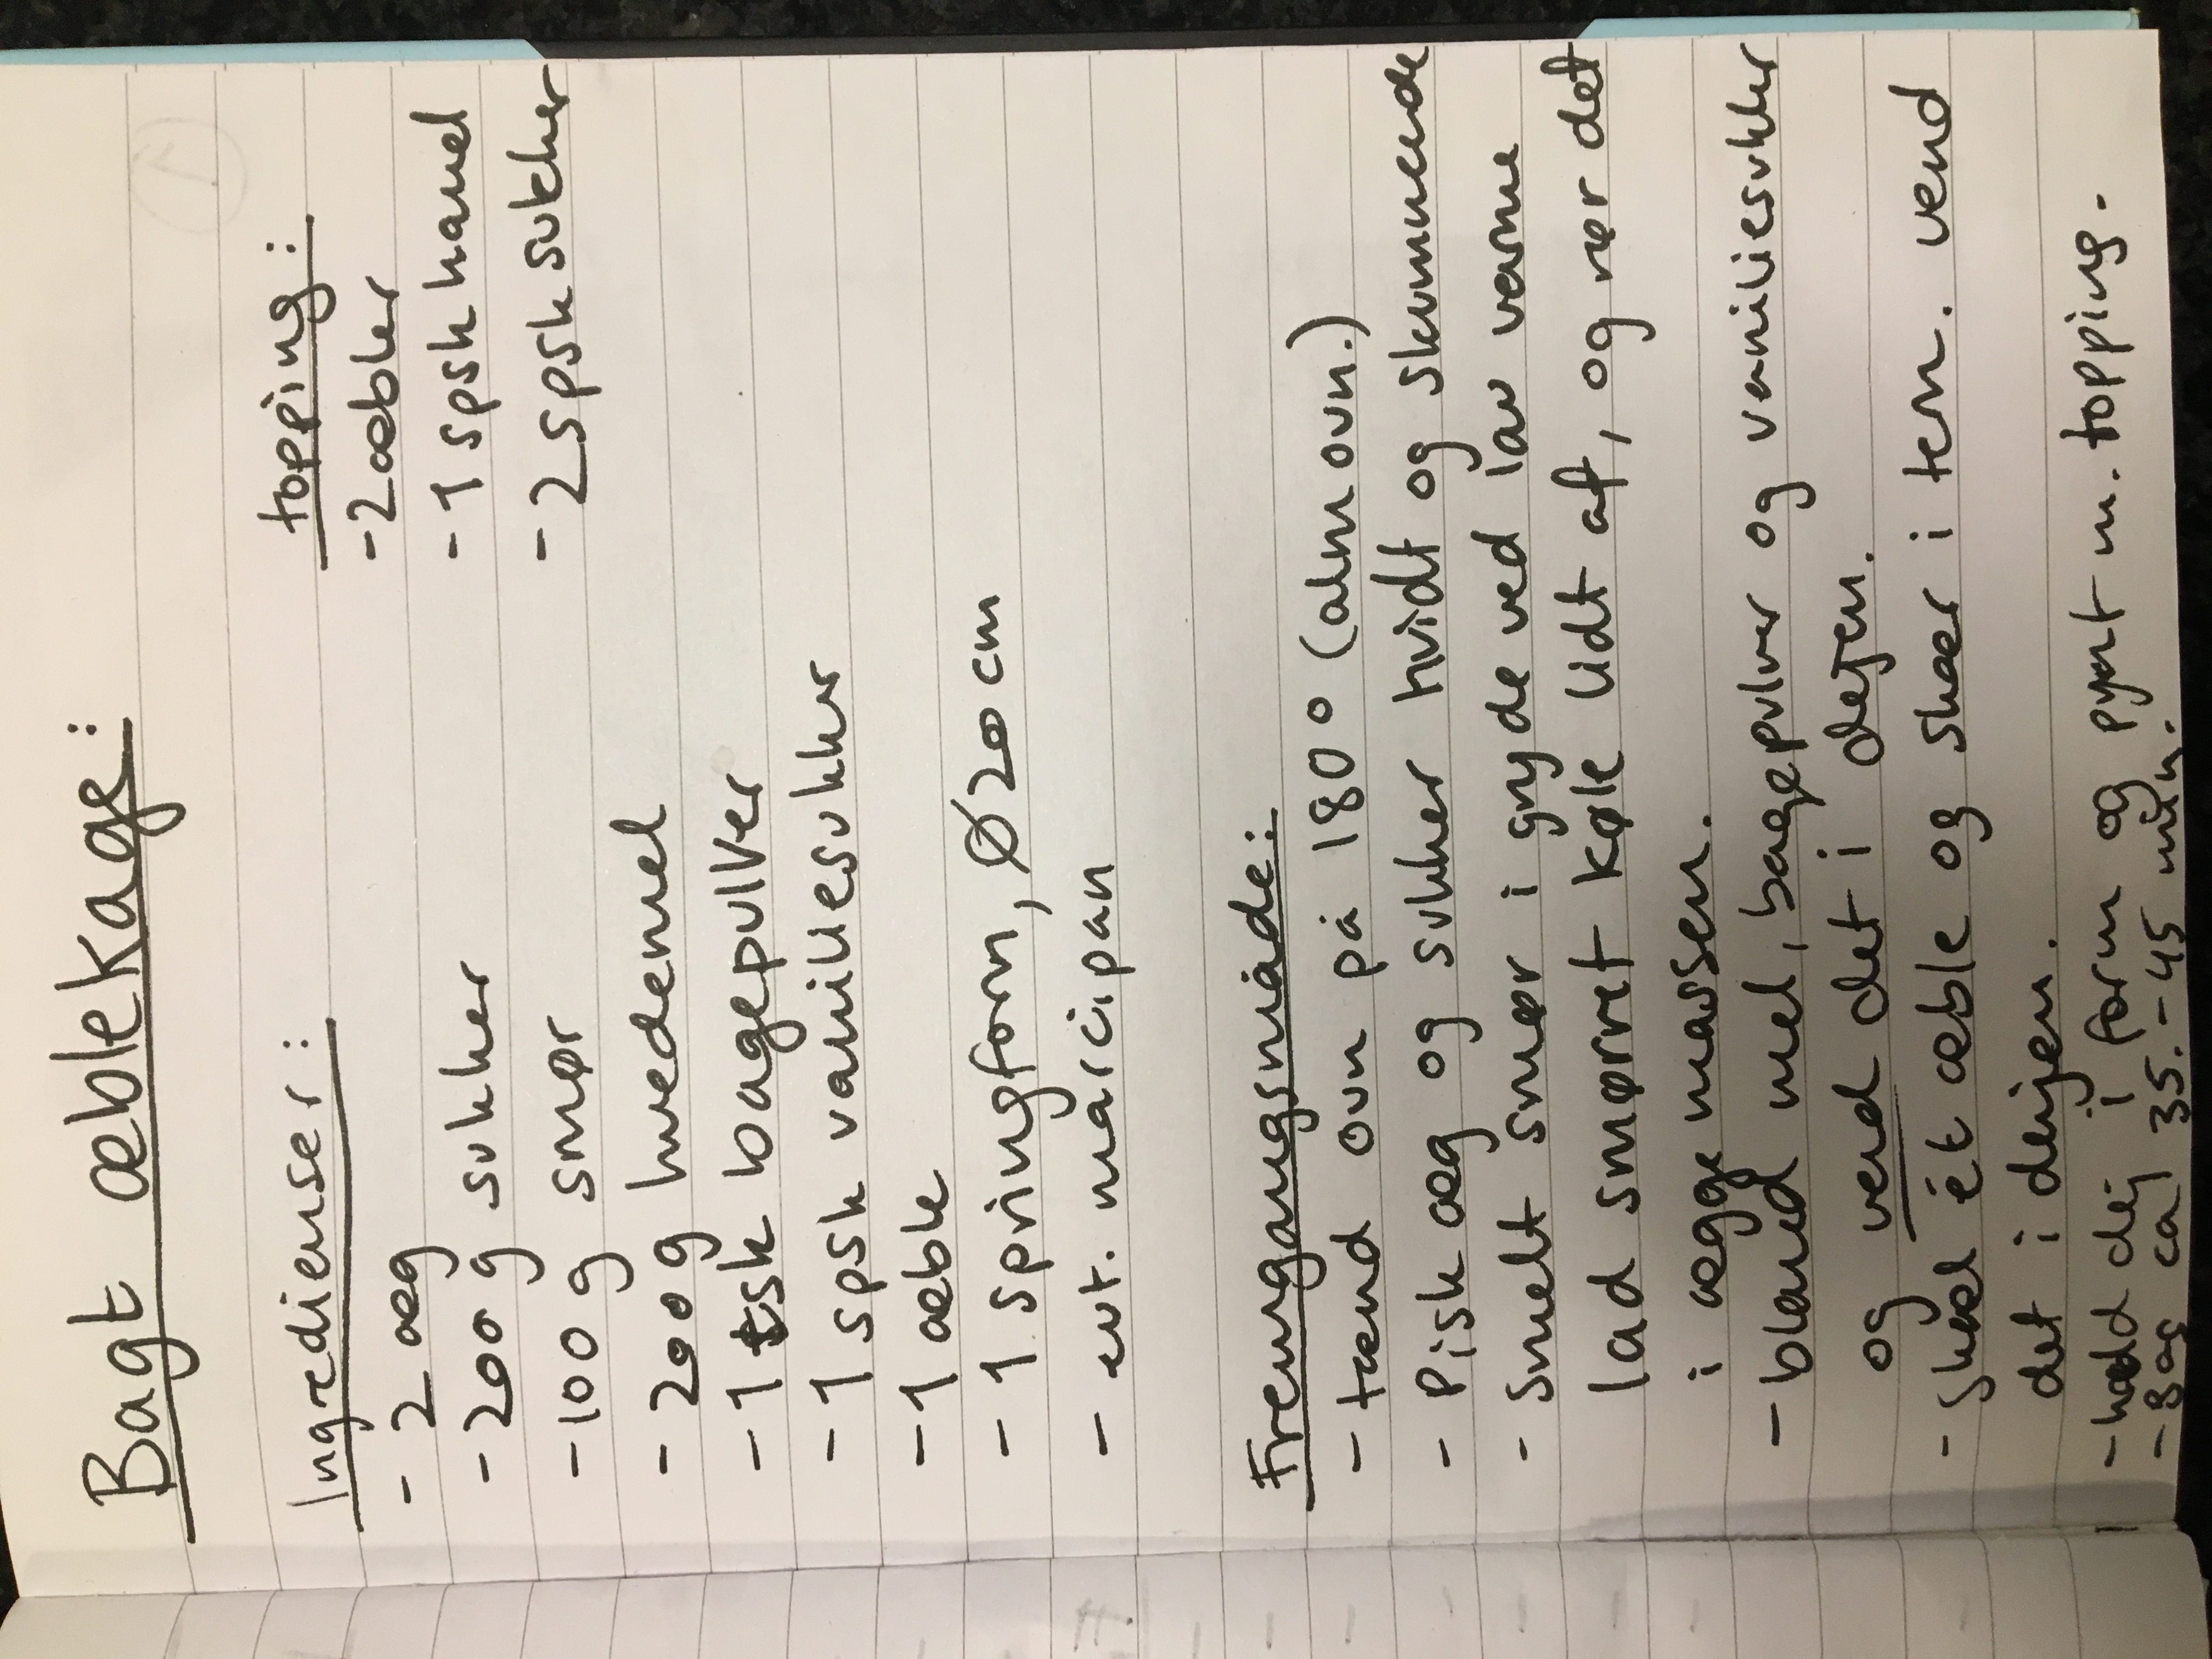 Bagt æblekage:
Ingredienser:
- 2 æg
- 200 g sukker
- 100 g smør
- 200 g hvedemel
- 1 tsk bagepulver
- 1 spsk vaniliesukker
- 1 æble
- 1 springform, Ø 20 cm
- evt. marcipan
topping:
- 2 æbler
- 1 spsk kanel
- 2 spsk sukker
Fremgangsmåde:
- tænd ovn på 180° (alm ovn.)
- Pisk æg og sukker hvidt og skummende
- Smelt smør i gryde ved lav varme
lad smørret køle lidt af, og rør det
i æggemassen.
- bland mel, bagepulver og vaniliesukker
og vend det i dejen.
- skræl ét æble og skær i tern. vend
det i dejen.
- hæld dej i form og pynt m. topping.
- Bag ca 35.-45 min.